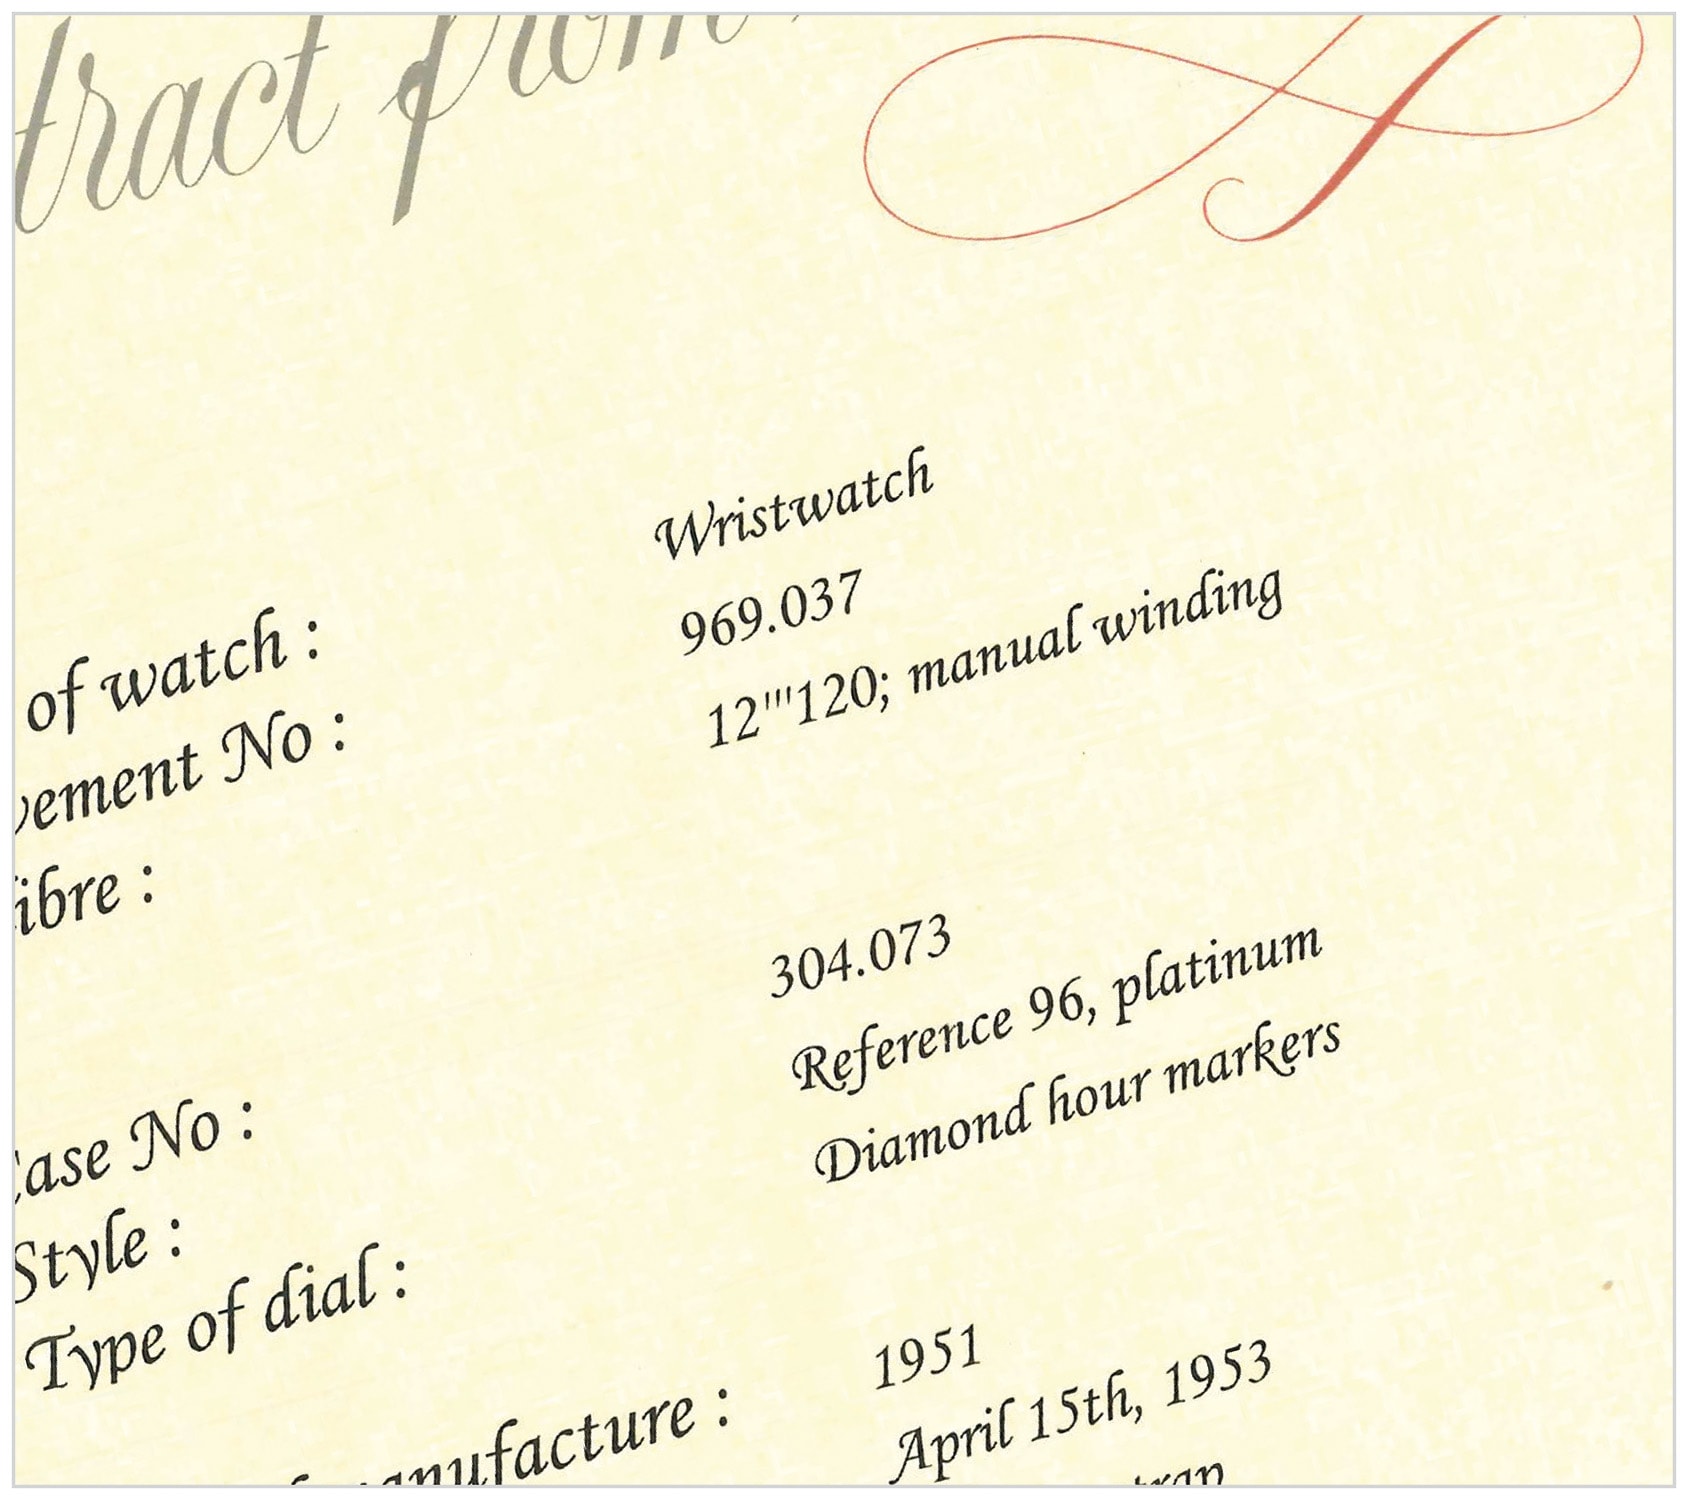 tract from
of watch : Wristwatch
vement No : 969.037
ibre : 12'''120; manual winding
Case No : 304.073
Style : Reference 96, platinum
Type of dial : Diamond hour markers
manufacture : 1951
April 15th, 1953